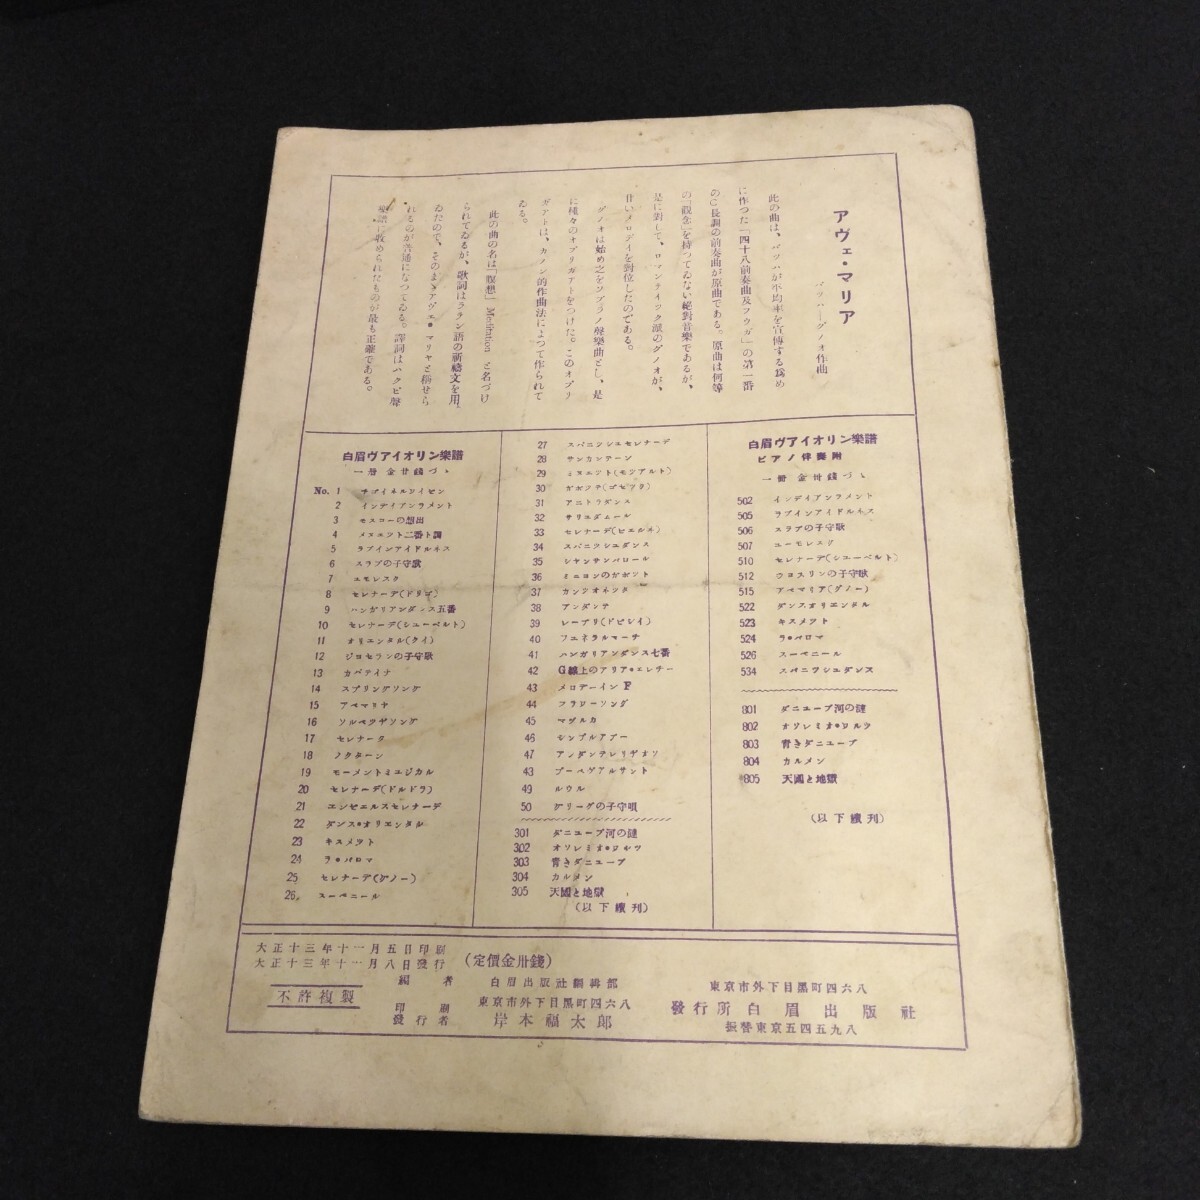 アヴェ・マリア
バッハ―グノオ作曲
此の曲は、バッハが平均率を宣傳する爲め
に作つた「四十八前奏曲及フウガ」の第一番
のC長調の前奏曲が原曲である。原曲は何等
の「觀念」を持つてゐない絕對音樂であるが、
是に對して、ロマンティック派のグノオが、
甘いメロディを對位したのである。
グノオは始め之をソプラノ聲樂曲とし、是
に種々のオブリガアトをつけた。このオブリ
ガアトは、カノン的作曲法によつて作られて
ゐる。
此の曲の名は「瞑想」Meditation と名づけ
られてゐるが、歌詞はラテン語の祈禱文を用
ゐたので、そのまゝアヴェ・マリヤと稱せら
れるのが普通になつてゐる。譯詞はハクビ聲
樂譜に收められたものが最も正確である。
白眉ヴアイオリン樂譜
一册 金廿錢づゝ
No. 1 チゴイネルワイゼン
2 インデイアンラメント
3 モスコーの想出
4 メヌエット二番ト調
5 ラブインアイドルネス
6 スラブの子守歌
7 ユモレスク
8 セレナーデ(ドリゴ)
9 ハンガリアンダンス五番
10 セレナーデ(シユーベルト)
11 オリエンタル(クイ)
12 ジヨセランの子守歌
13 カバテイナ
14 スプリングソング
15 アベマリヤ
16 ソルベヂヤソング
17 セレナータ
18 ノクターン
19 モーメントミユジカル
20 セレナーデ(ドルドラ)
21 エンゼエルスセレナーデ
22 ダンス・オリエンタル
23 キスメット
24 ラ・パロマ
25 セレナーデ(グノー)
26 スーベニール
27 スパニツシユセレナーデ
28 サンカンテーン
29 ミヌエット(モツアルト)
30 ガボツテ(ゴセック)
31 アニトラダンス
32 サリユダムール
33 セレナーデ(ピエルネ)
34 スパニツシユダンス
35 シヤンサンパロール
36 ミニヨンのガボット
37 カンツオネッタ
38 アンダンテ
39 レーブリ(ドビシイ)
40 フユネラルマーチ
41 ハンガリアンダンス七番
42 G線上のアリア・エレヂー
43 メロデーインF
44 フラワーソング
45 マヅルカ
46 センプルアブー
47 アンダンテレリヂオソ
43 ブーベヂアルサント
49 ルウル
50 グリーグの子守唄
301 ダニユーブ河の漣
302 オソレミオ・ワルツ
303 靑きダニユーブ
304 カルメン
305 天國と地獄
(以下續刊)
白眉ヴアイオリン樂譜
ピアノ伴奏附
一册 金卅錢づゝ
502 インデイアンラメント
505 ラブインアイドルネス
506 スラブの子守歌
507 ユーモレスク
510 セレナーデ(シユーベルト)
512 ウヨスリンの子守歌
515 アベマリア(グノー)
522 ダンスオリエンタル
523 キスメット
524 ラ・パロマ
526 スーベニール
534 スパニツシユダンス
801 ダニユーブ河の漣
802 オソレミオ・ワルツ
803 靑きダニユーブ
804 カルメン
805 天國と地獄
(以下續刊)
大正十三年十一月五日印刷
大正十三年十一月八日發行
(定價金卅錢)
不許複製
編者 白眉出版社編輯部
印刷發行者 東京市外下目黑町四六八
岸本福太郎
東京市外下目黑町四六八
發行所 白眉出版社
振替東京五四五九八